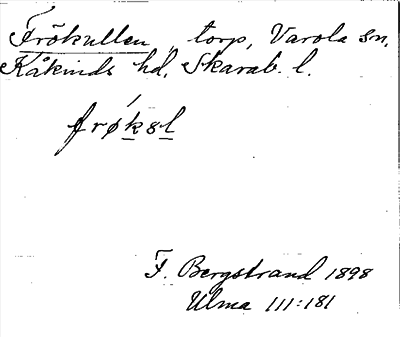 Frökullen torp, Varola sn,
Kåkinds hd, Skarab. l.
frøk8l
F. Bergstrand 1898
Ulma 111:181